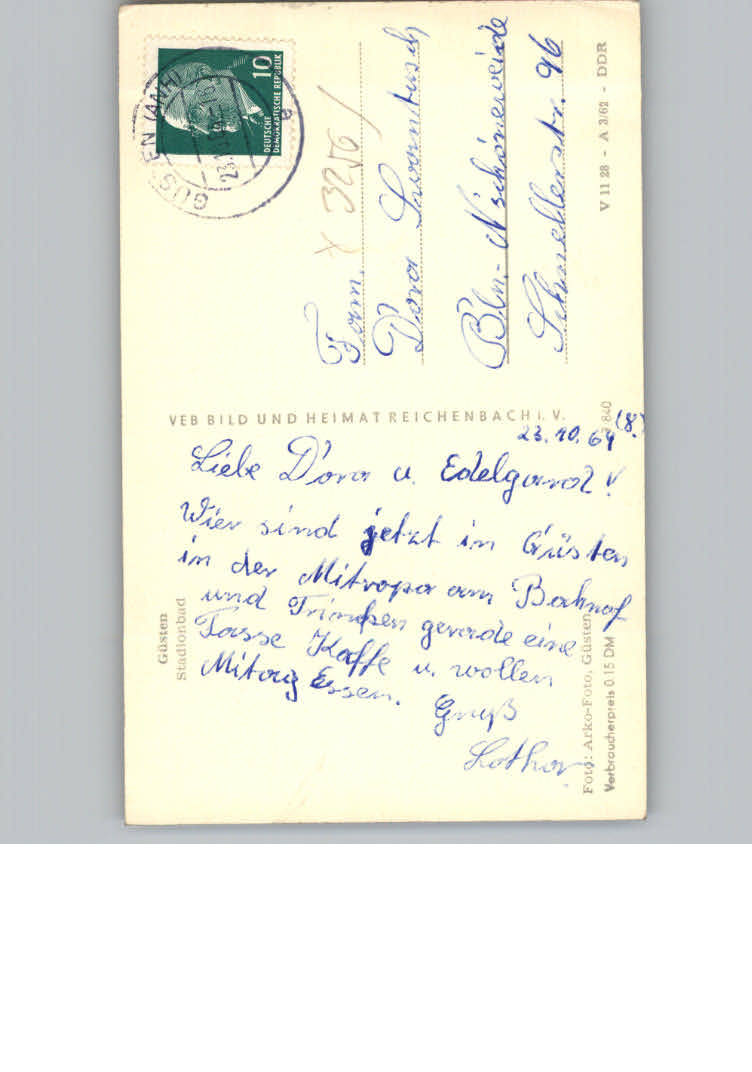 Güsten
Stadionbad
23.10.64 (8.)
Liebe Dora u. Edelgard!
Wier sind jetzt in Güsten
in der Mitropa am Bahnof
und Trinken gerade eine
Tasse Kaffe u. wollen
Mitag Essen.
Gruß
Lothar
VEB BILD UND HEIMAT REICHENBACH I. V.
GÜSTEN (ANH)
a
10
DEUTSCHE
DEMOKRATISCHE REPUBLIK
x 3256 /
Fam.
Dora
Bln.- Nschöneweide
Schnellerstr. 96
V 11 28 - A 3/62 - DDR
Foto: Arko-Foto, Güsten
Verbraucherpreis 0.15 DM